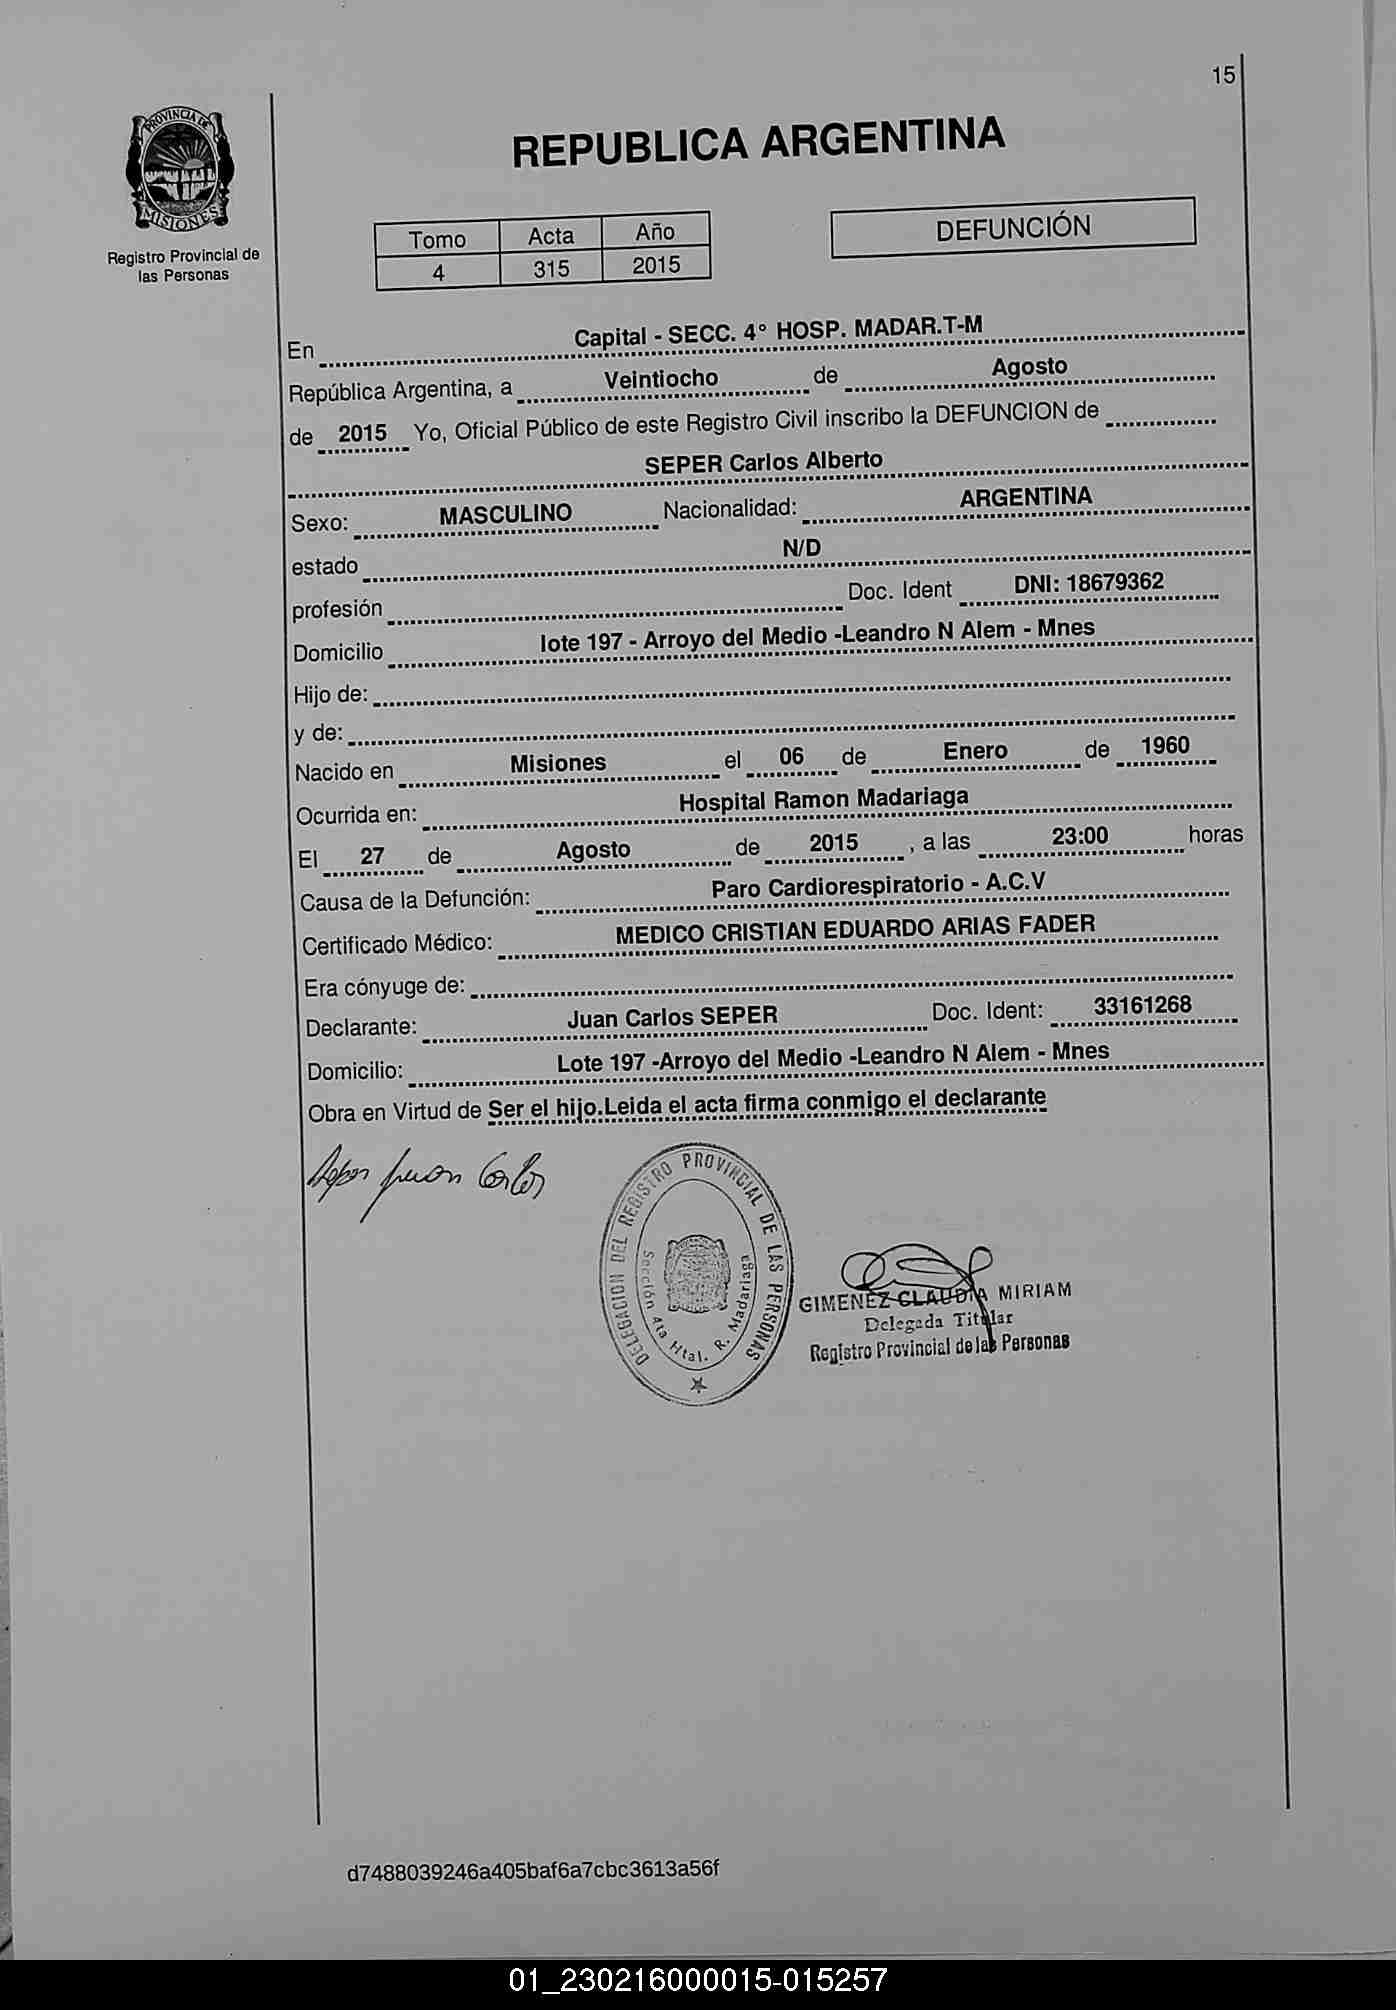 15
PROVINCIA DE
MISIONES
Registro Provincial de
las Personas
REPUBLICA ARGENTINA
Tomo Acta Año
4 315 2015
DEFUNCIÓN
En Capital - SECC. 4° HOSP. MADAR.T-M
República Argentina, a Veintiocho de Agosto
de 2015 Yo, Oficial Público de este Registro Civil inscribo la DEFUNCION de
SEPER Carlos Alberto
Sexo: MASCULINO Nacionalidad: ARGENTINA
estado N/D
profesión Doc. Ident DNI: 18679362
Domicilio lote 197 - Arroyo del Medio -Leandro N Alem - Mnes
Hijo de:
y de:
Nacido en Misiones el 06 de Enero de 1960
Ocurrida en: Hospital Ramon Madariaga
El 27 de Agosto de 2015 , a las 23:00 horas
Causa de la Defunción: Paro Cardiorespiratorio - A.C.V
Certificado Médico: MEDICO CRISTIAN EDUARDO ARIAS FADER
Era cónyuge de:
Declarante: Juan Carlos SEPER Doc. Ident: 33161268
Domicilio: Lote 197 -Arroyo del Medio -Leandro N Alem - Mnes
Obra en Virtud de Ser el hijo.Leida el acta firma conmigo el declarante
Seper Juan Carlos
DELEGACION DEL REGISTRO PROVINCIAL DE LAS PERSONAS
Sección 4ta Htal. R. Madariaga
GIMENEZ CLAUDIA MIRIAM
Delegada Titular
Registro Provincial de las Personas
d7488039246a405baf6a7cbc3613a56f
01_230216000015-015257